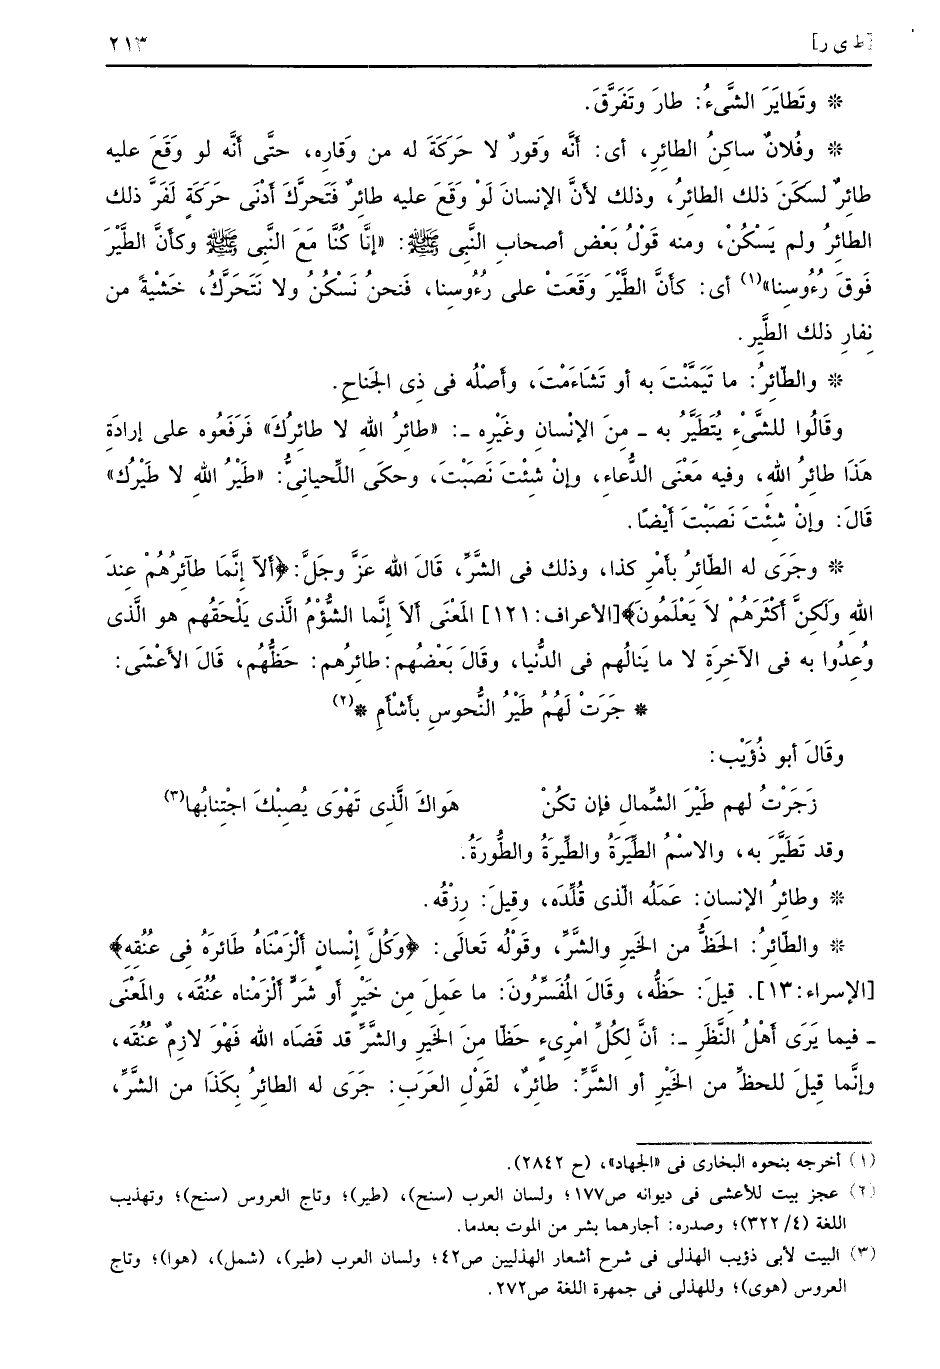 [ط ى ر] ٢١٣
* وتَطايَرَ الشَّىءُ: طارَ وتَفَرَّقَ.
* وفُلانٌ ساكِنُ الطائِرِ، أى: أنَّه وَقورٌ لا حَرَكَةَ له من وَقارِه، حتَّى أنَّه لو وَقَعَ عليه
طائِرٌ لسَكَنَ ذلك الطائِرُ، وذلك لأنَّ الإنسانَ لَوْ وَقَعَ عليه طائِرٌ فَتَحرَّكَ أدْنَى حَرَكَةٍ لَفَرَّ ذلك
الطائِرُ ولم يَسْكُنْ، ومنه قَوْلُ بَعْضِ أصحابِ النَّبِى ﷺ: «إنَّا كُنَّا مَعَ النَّبِى ﷺ وكأنَّ الطَّيْرَ
فَوقَ رُءُوسِنا»(١) أى: كأنَّ الطَّيْرَ وَقَعَتْ على رُءُوسِنا، فَنحنُ نَسْكُنُ ولا نَتَحَرَّكُ، خَشْيةً من
نِفارِ ذلك الطَّيرِ.
* والطّائِرُ: ما تَيَمَّنْتَ به أو تَشَاءَمْتَ، وأصْلُه فى ذِى الجَناحِ.
وقَالُوا للشَّىْءِ يُتَطَيَّرُ به ـ مِنَ الإنْسانِ وغَيْرِه ـ: «طائِرُ اللهِ لا طائِرُكَ» فَرَفَعُوه على إرادَةِ
هَذَا طائِرُ اللهِ، وفيه مَعْنَى الدُّعاءِ، وإنْ شِئْتَ نَصَبْتَ، وحكَى اللِّحيانىُّ: «طَيْرُ اللهِ لا طَيْرُك»
قالَ: وإنْ شِئْتَ نَصَبْتَ أيْضًا.
* وجَرَى له الطّائِرُ بأَمْرِ كذا، وذلك فى الشَّرِّ، قَالَ الله عَزَّ وجَلَّ: ﴿أَلآ إِنَّمَا طآئِرُهُمْ عِندَ
اللهِ وَلَكِنَّ أَكْثَرَهُمْ لاَ يَعْلَمُونَ﴾[الأعراف:١٢١] المَعْنَى ألاَ إنَّما الشُّؤْمُ الَّذى يَلْحَقُهم هو الَّذى
وُعِدُوا به فى الآخِرَةِ لا ما يَنالُهم فى الدُّنيا، وقالَ بَعْضُهم: طائِرُهم: حَظُّهُم، قَالَ الأعْشَى:
* جَرَتْ لَهُمُ طَيْرُ النُّحوسِ بأَشْأَمِ *(٢)
وقَالَ أبو ذُؤَيْبٍ:
زَجَرْتُ لهم طَيْرَ الشِّمالِ فإن تكُنْ هَواكَ الَّذى تَهْوَى يُصِبْكَ اجْتِنابُها(٣)
وقد تَطَيَّرَ به، والاسْمُ الطِّيَرَةُ والطِّيرَةُ والطُّورَةُ.
* وطائِرُ الإنسانِ: عَمَلُه الّذى قُلِّدَه، وقيلَ: رِزْقُه.
* والطّائِرُ: الحَظُّ من الخَيرِ والشَّرِّ، وقَوْلُه تَعالَى: ﴿وَكُلَّ إِنْسانٍ أَلْزَمْنَاهُ طَائِرَهُ فِى عُنُقِهِ﴾
[الإسراء:١٣]. قيلَ: حظُّه، وقَالَ المُفَسِّرُونَ: ما عَمِلَ مِن خَيْرٍ أو شَرٍّ ألْزَمْناه عُنُقَه، والمَعْنَى
ـ فيما يَرَى أهْلُ النَّظَرِ ـ: أنَّ لكُلِّ امْرِىءٍ حَظّا مِنَ الخَيرِ والشَّرِّ قد قَضَاه الله فَهْوَ لازِمٌ عُنُقَه،
وإنَّما قِيلَ للحظِّ من الخَيْرِ أو الشَّرِّ: طائِرٌ، لقَوْلِ العَرَبِ: جَرَى له الطائِرُ بِكَذَا من الشَّرِّ،
(١) أخرجه بنحوه البخارى فى «الجهاد»، (ح ٢٨٤٢).
(٢) عجز بيت للأعشى فى ديوانه ص١٧٧؛ ولسان العرب (سنح)، (طير)؛ وتاج العروس (سنح)؛ وتهذيب
اللغة (٤/ ٣٢٢)؛ وصدره: أجارهما بشر من الموت بعدما.
(٣) البيت لأبى ذؤيب الهذلى فى شرح أشعار الهذليين ص٤٢؛ ولسان العرب (طير)، (شمل)، (هوا)؛ وتاج
العروس (هوى)؛ وللهذلى فى جمهرة اللغة ص٢٧٢.